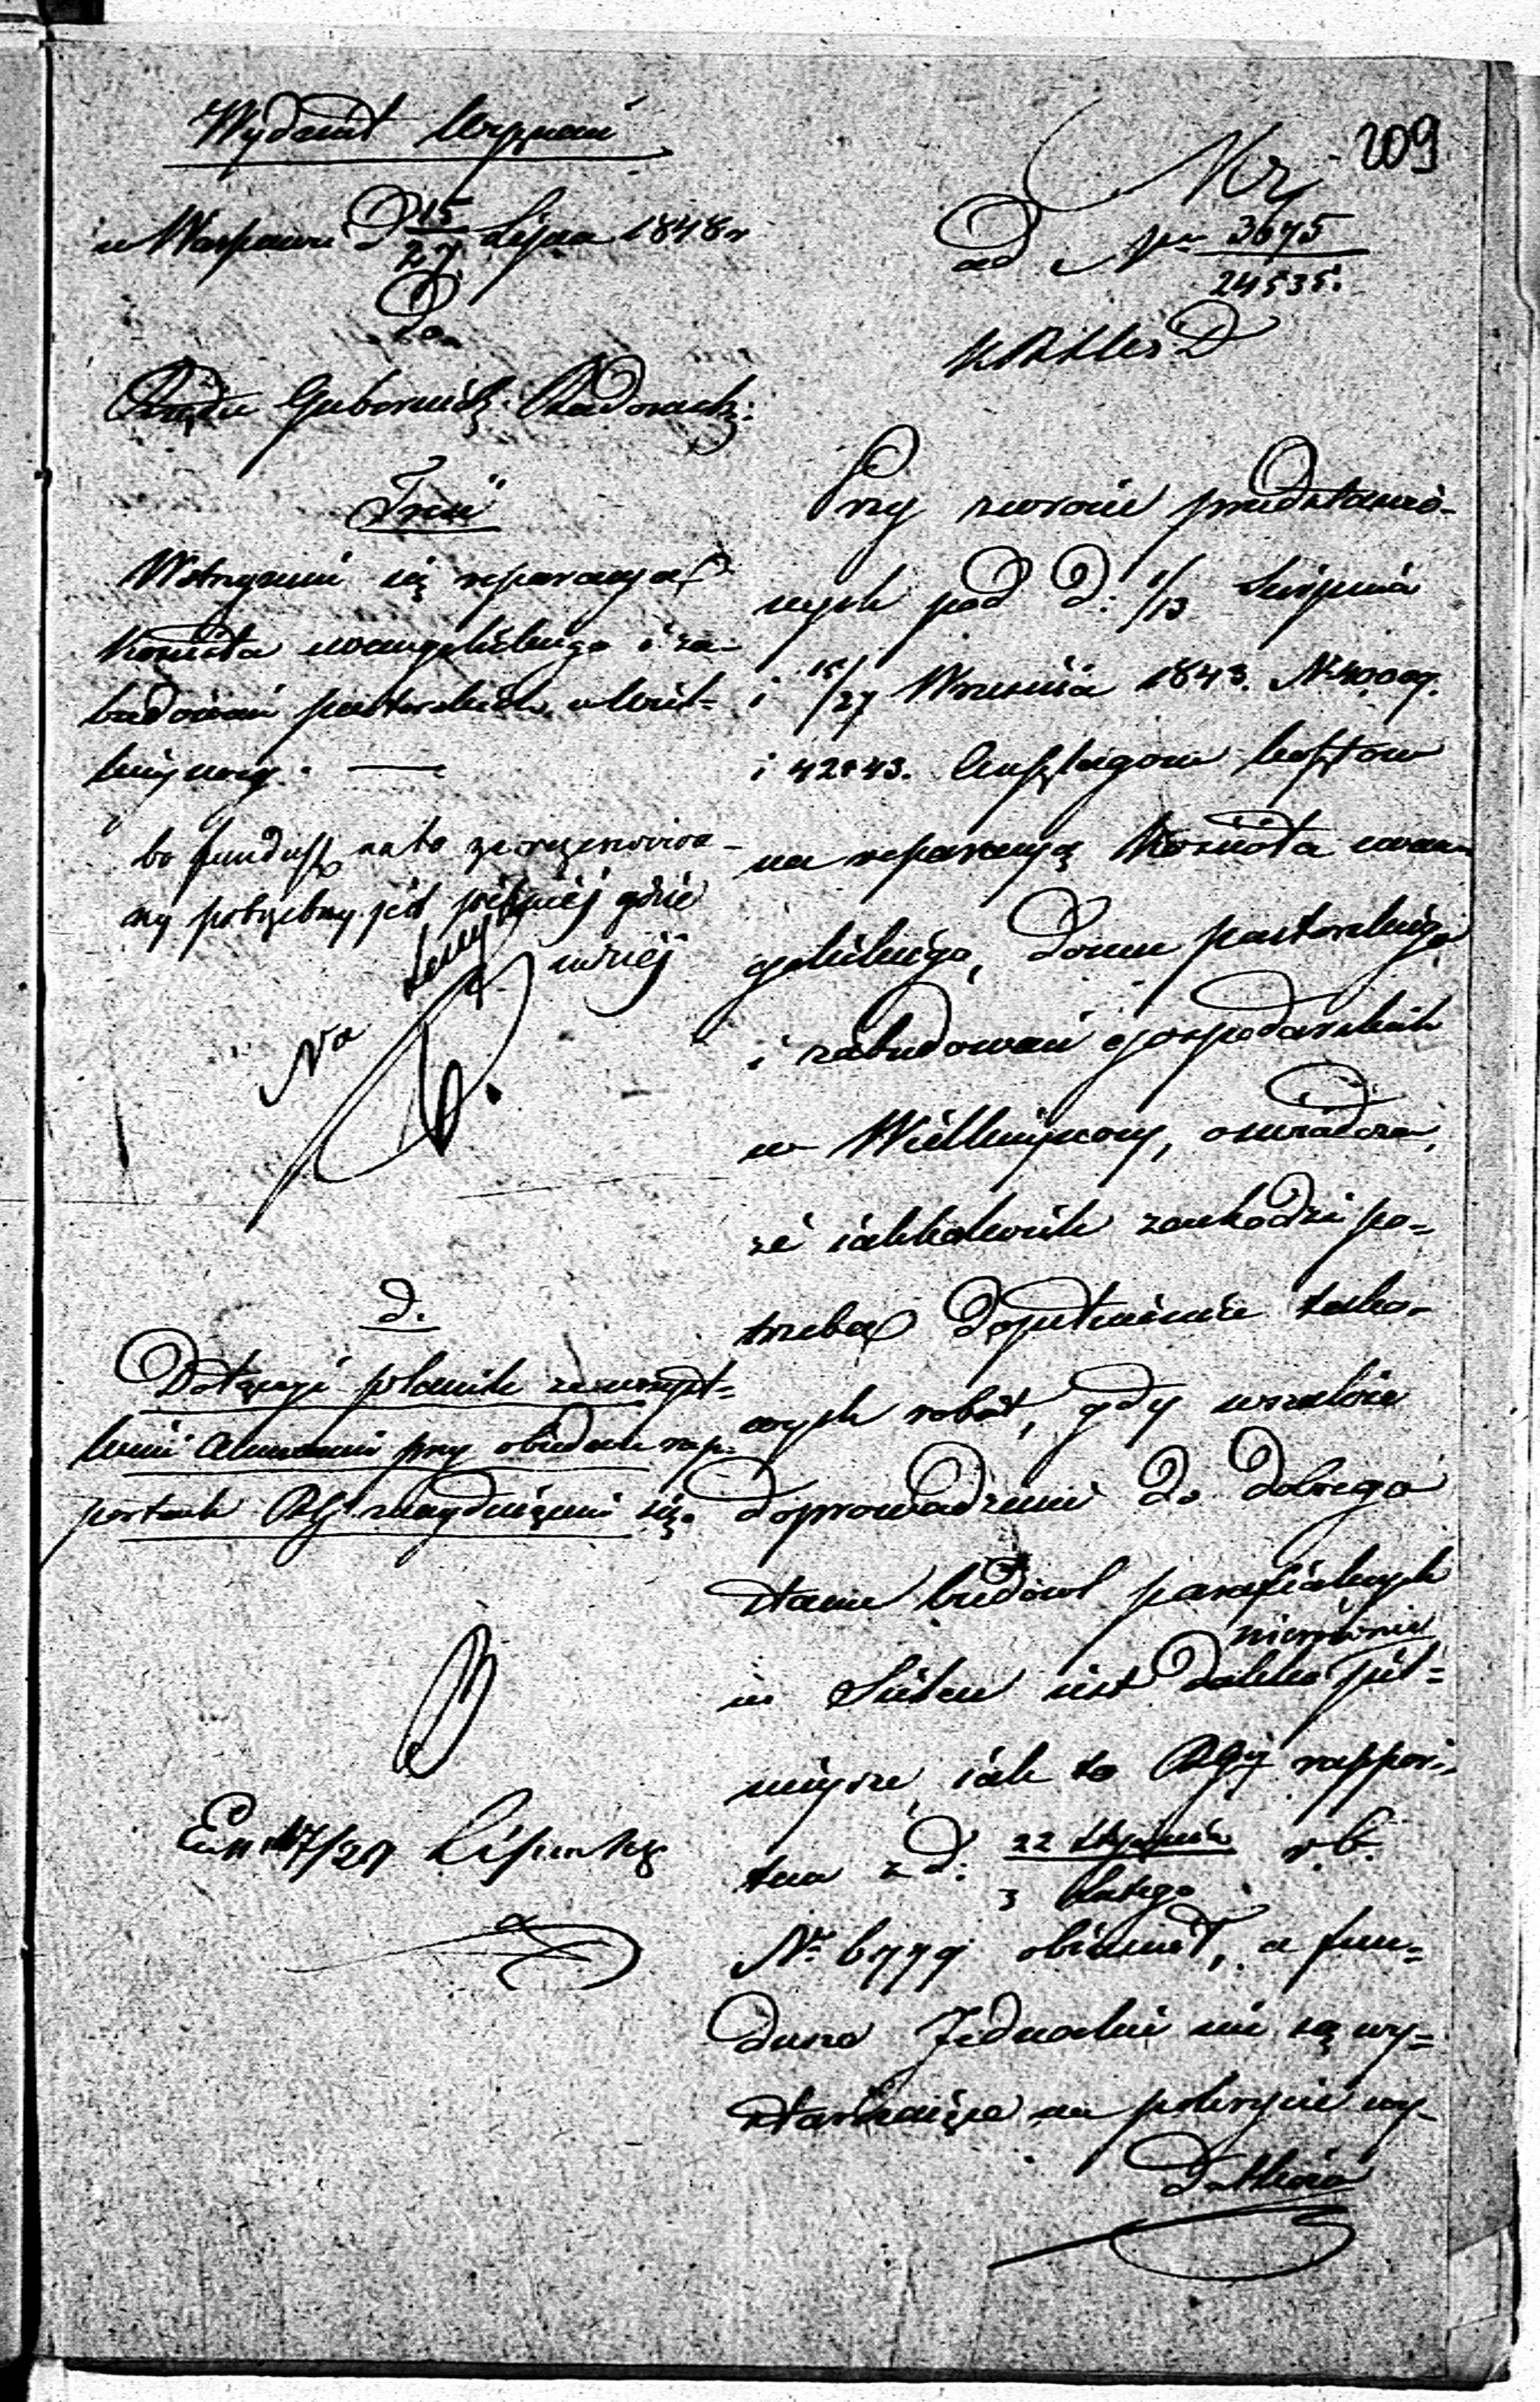 Wydział Wyznań
w Warszawie D 15/27 Lipca 1848 r
Do
Rządu Gubernialg. Radomsk:
Treść
Wstrzymuie się reparacya
Kościoła ewangelickiego i za-
budowań pastorskich w Wiel-
kiejwsy. —
bo fundusz na to zarezerwowa-
ny potrzebny jest pilniej gdzie
indziej
Na
D.
Dołączyć plamik ze wszyst-
kiemi Anexami przy obiedwuch rap-
portach RG znayduiącemi się.
Ex 17/29 Lipca
209
Nr
ad Nr 3675/24535.
KRSWiD
Przy zwrocie przedstawio-
nych pod d: 1/13 Sierpnia
i 15/27 Września 1843. N 40009.
i 42843. Anszlagow kosztow
na reparacyą Kościoła ewan-
gielickiego, Domu pastorskiego
i zabudowań gospodarskich
w Wielkieywsy, oświadcza,
że iakkolwiek zachodzi po-
trzeba dopełnienia tako-
wych robót, gdy wszakże
doprowadzenie do dobrego
stanu budowl parafialnych
nierównie
w Sielcu iest daleko pil-
nieysze, iak to RGy rappor-
tua z d: 22 Stycznia/3 Lutego r.b.
Nr 6779 obiawił, a fun-
dusze Jednakie nie są wy-
starczaiące na pokrycie wy-
datków